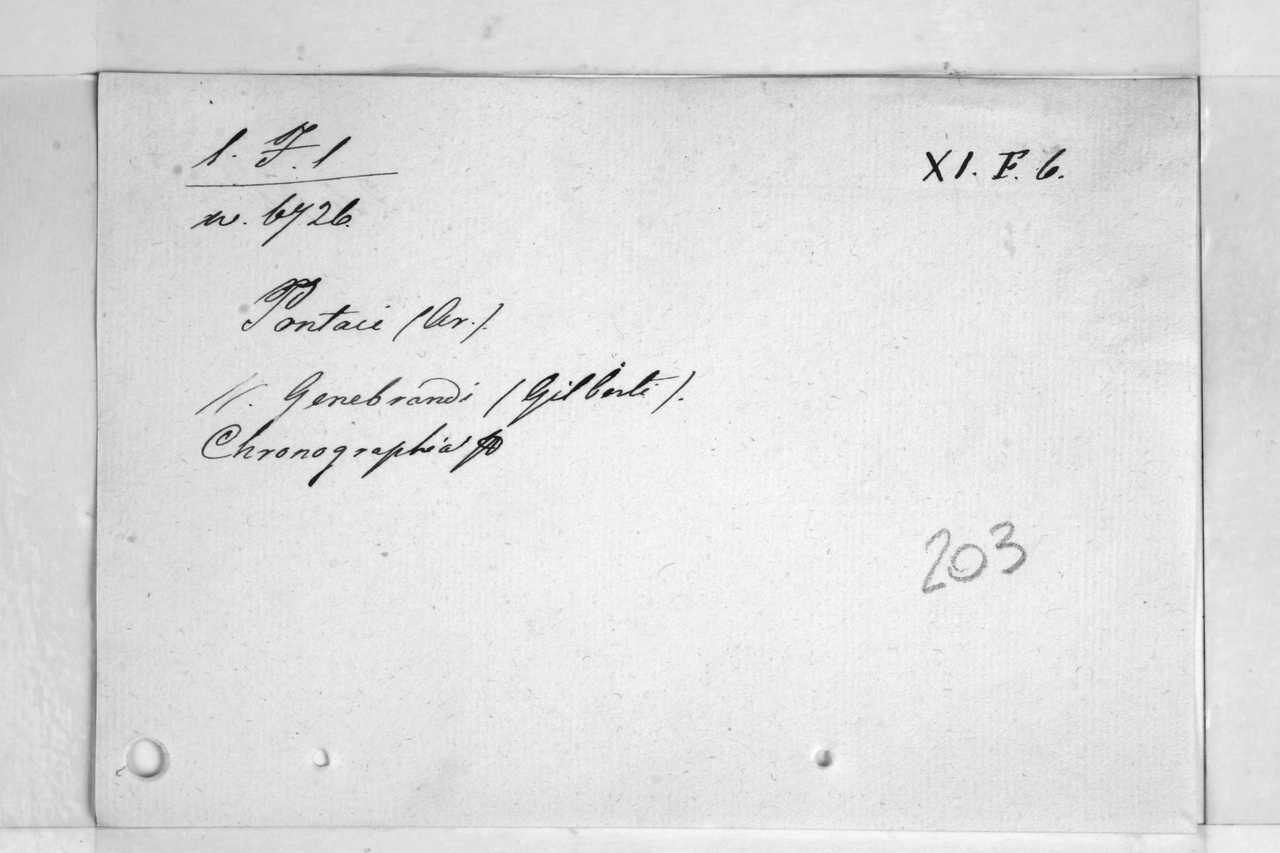 1. F. 1
XI. F. 6.
n. 6726.
Pontaci (Ar.).
V. Genebrandi (Gilberti).
Chronographia
203